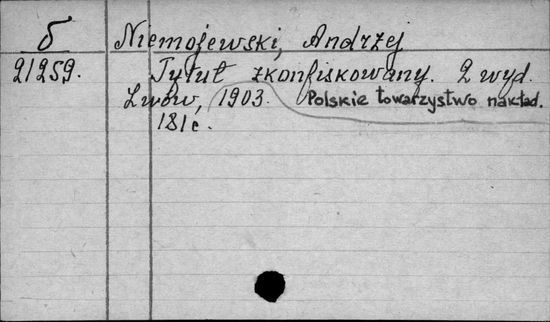 б Niemojewski, Andrzej
21259. Tytuł zkonfiskowany. 2 wyd.
Lwów, 1903. Polskie towarzystwo nakład.
181 c.